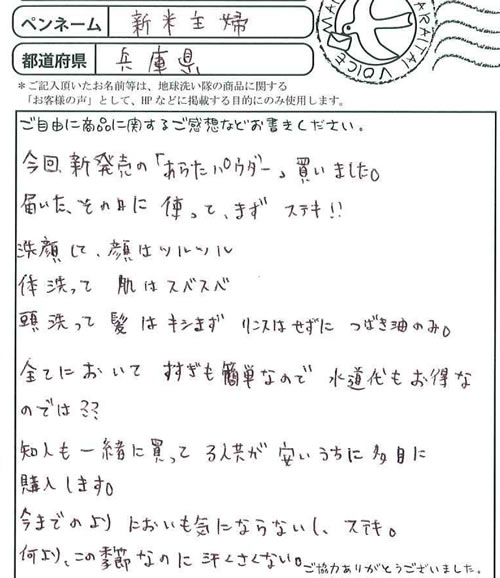 ペンネーム 新米主婦
都道府県 兵庫県
*ご記入頂いたお名前等は、地球洗い隊の商品に関する
「お客様の声」として、HPなどに掲載する目的にのみ使用します。
VOICE
ご自由に商品に関するご感想などお書きください。
今回、新発売の「あらたパウダー」買いました。
届いた、その日に 使って、まず ステキ!!
洗顔して、顔はツルツル
体洗って 肌はスベスベ
頭洗って 髪はキシまず リンスはせずに つばき油のみ。
全てにおいて すすぎも簡単なので 水道代もお得な
のでは??
知人も一緒に買って る人共が 安いうちに多目に
購入します。
今までのより においも気にならないし、ステキ。
何より、この季節なのに汗くさくない。
ご協力ありがとうございました。